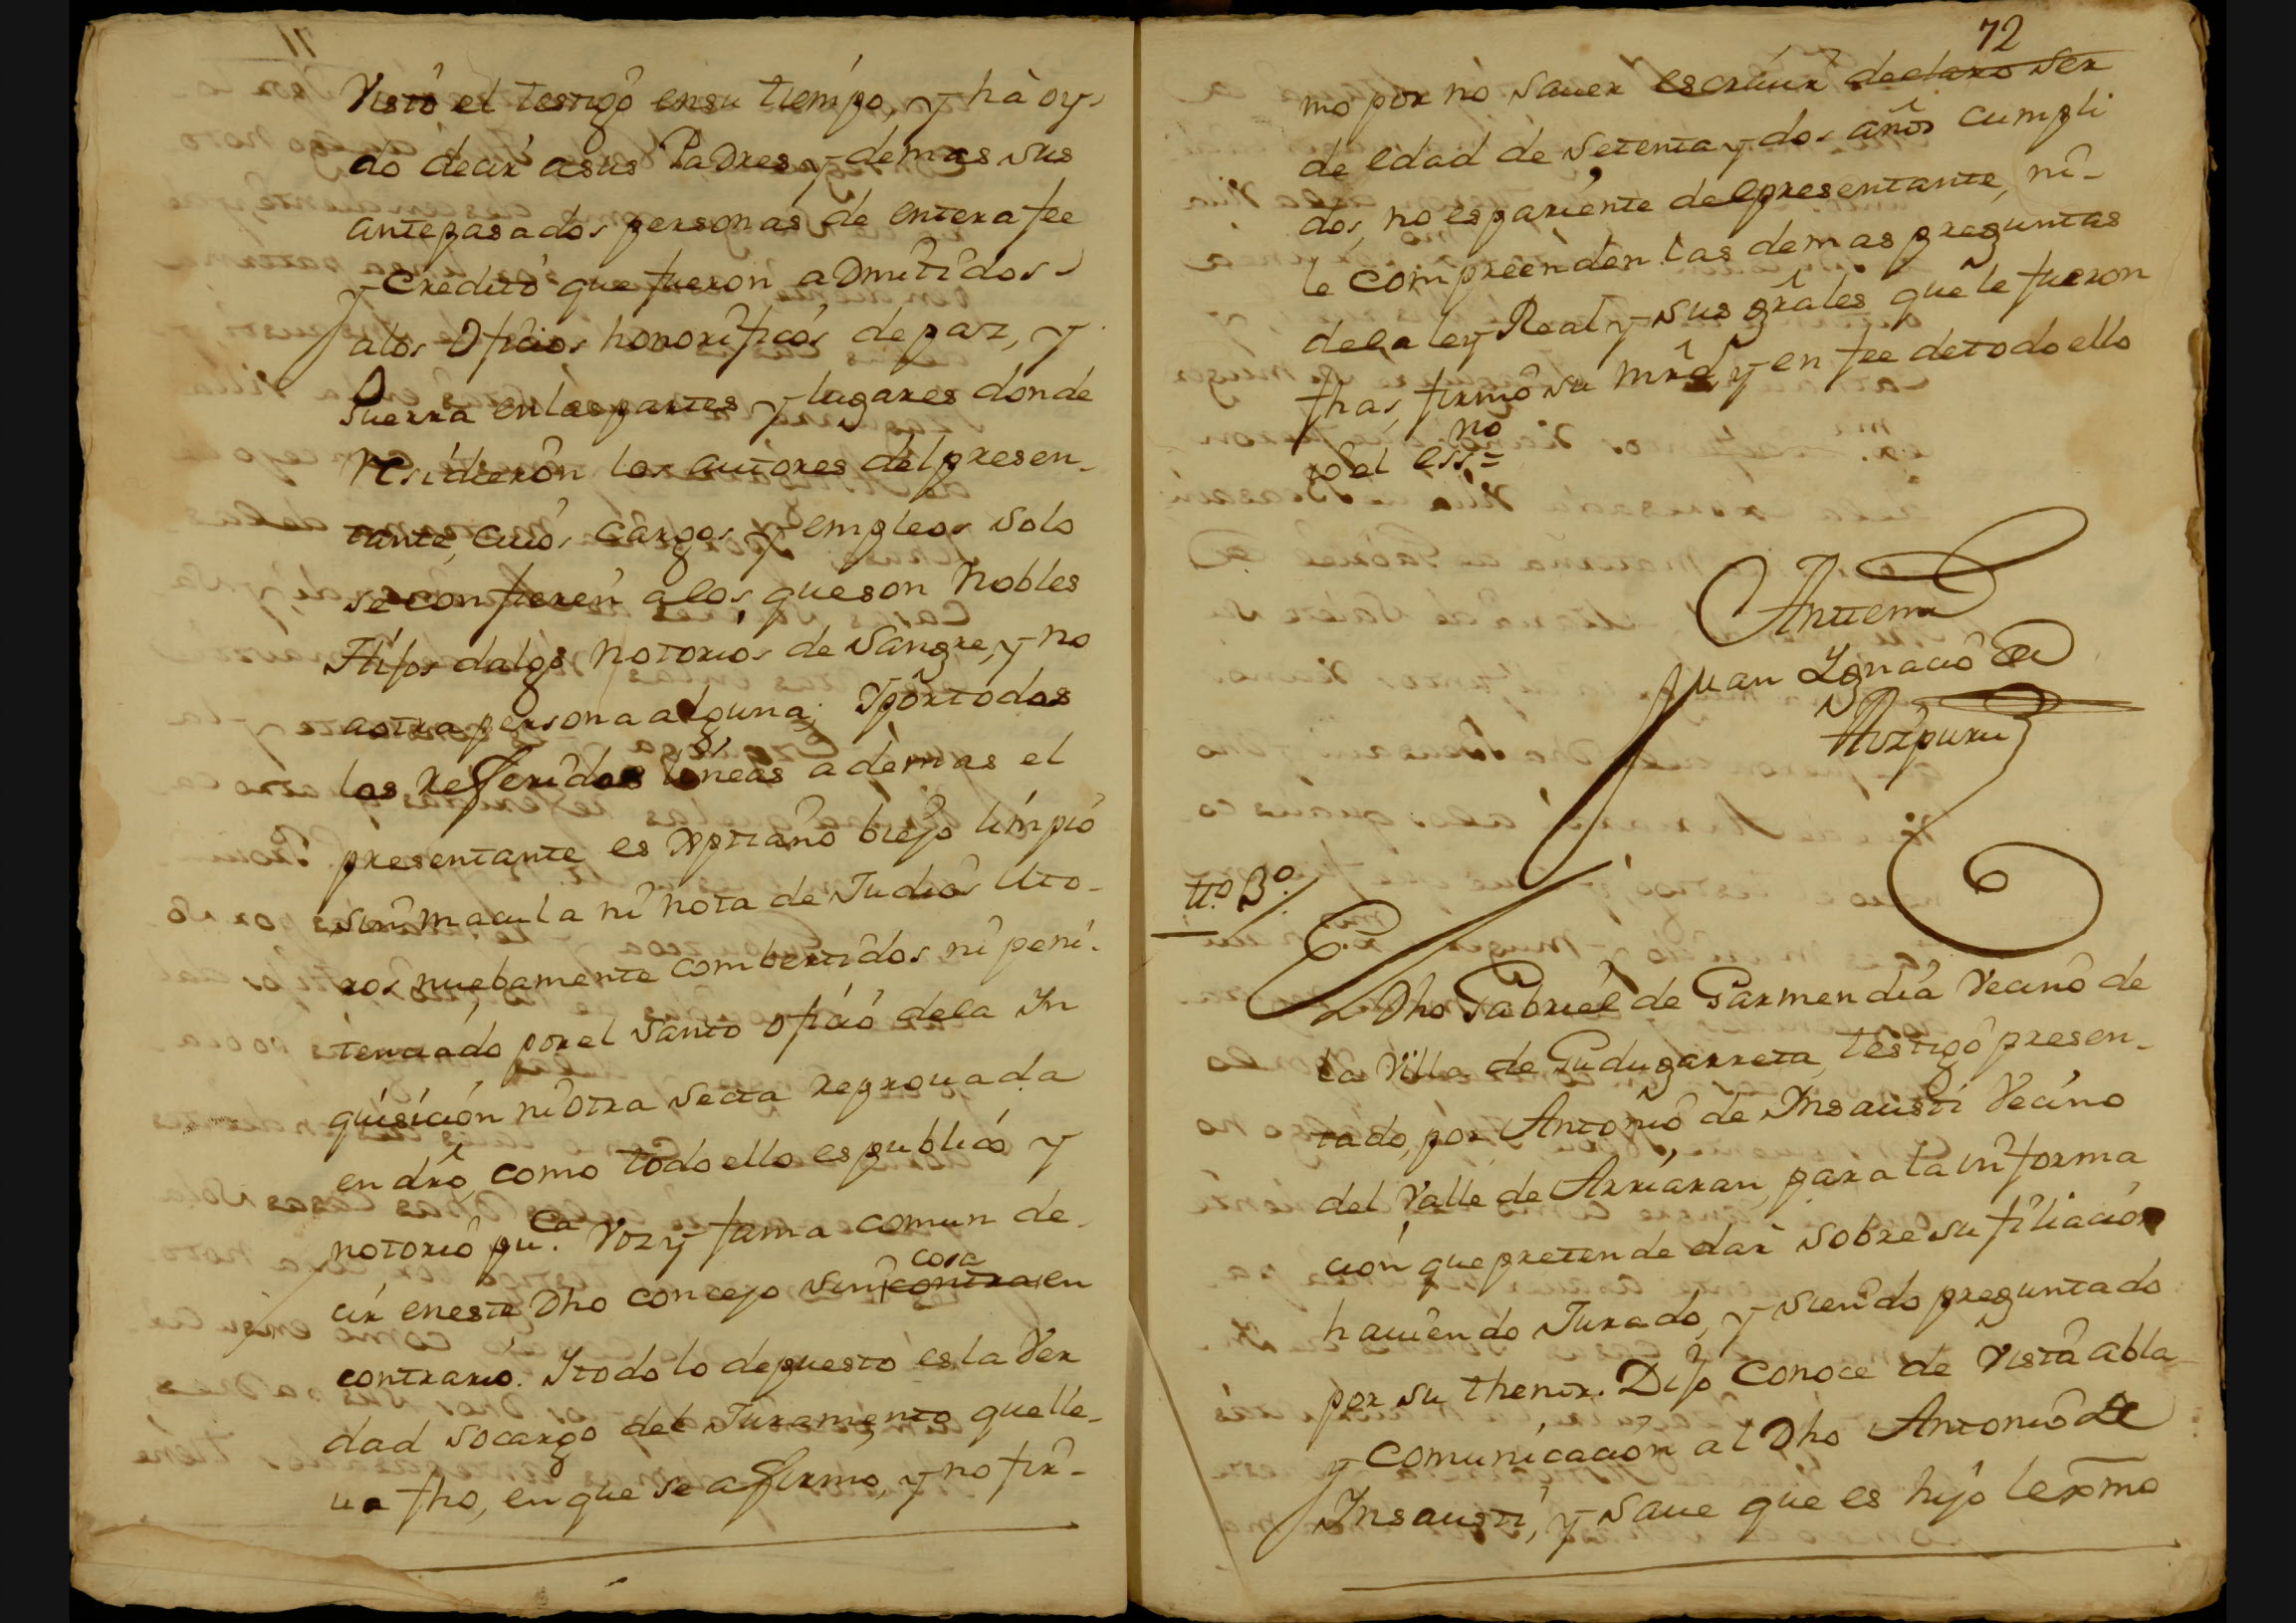 Visto el testigo ensu tiempo, y hà oy-
do decir asus Padres y demas sus
antepasados personas de entera fee
y Credito que fueron admitidos
alos Oficios honorificos de paz, y
Guerra enlas partes y lugares donde
residieron los autores del presen-
tante, cuios cargos y empleos solo
se confieren alos, que son Nobles
Hijos dalgo notorios de sangre, y no
aotra persona alguna; Y por todas
las Referidas lineas ademas el
presentante es Xptiano biejo limpio
sin macula ni nota de Judios Mo-
ros nuebamente combertidos ni peni-
tenciado por el santo oficio dela In
quisición ni otra secta reprouada
en dro, como todo ello es publico y
notorio pu.ca voz y fama comun de-
cir eneste Dho concejo sin contra en
cosa
contrario. Y todo lo depuesto es la Ver
dad socargo del Juramento que lle-
ua fho, en que se affirmo, y no fir-
72
mo por no sauer escriuir declaro ser
de edad de setenta y dos años cumpli
dos, no es pariente del presentante, ni-
le compreenden las demas preguntas
dela ley Real y sus grales que le fueron
fhas, firmô su mrd, y en fee de todo ello
yo el essno=
Antemi
Juan Ignacio de
Aizpuru
tt.o 3.o
El Dho Gabriel de Garmendia Vecino de
la Villa de Gudugarreta, testigo presen-
tado, por Antonio de Insausti Vecino
del Valle de Arriaran, para la informa
ción que pretende dar sobre su filiación
hauiendo Jurado, y siendo preguntado
por su thenor. Dijo Conoce de Vista abla
y Comunicación al Dho Antonio de
Insausti, y saue que es hijo lexmo